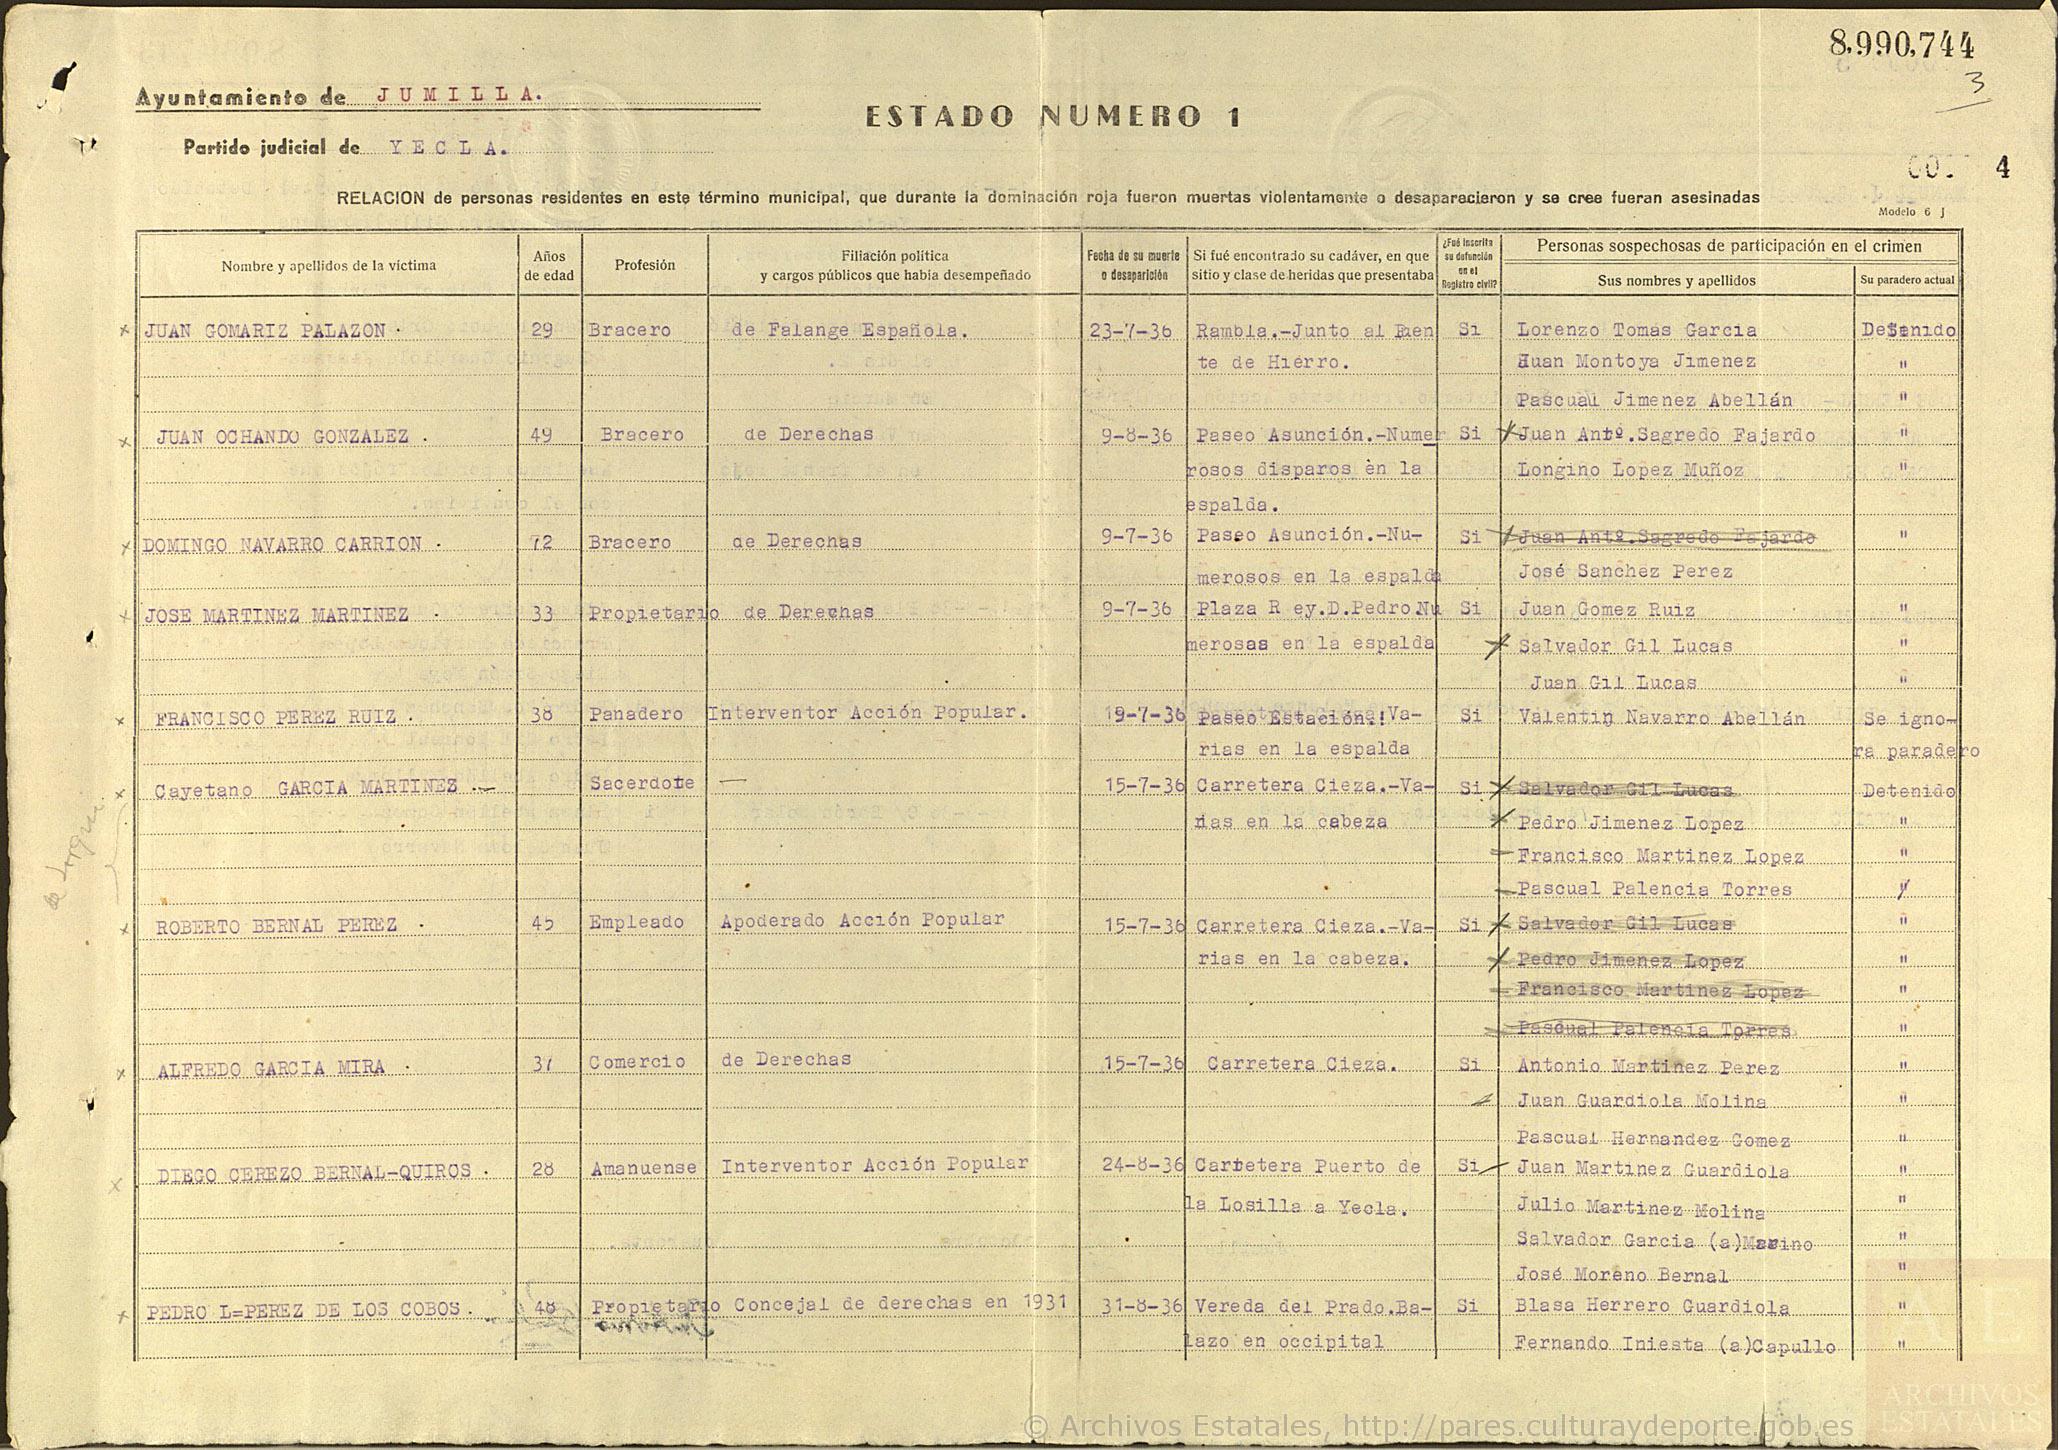 8,990,744
3
Ayuntamiento de JUMILLA.
ESTADO NUMERO 1
Partido judicial de YECLA.
4
RELACION de personas residentes en este término municipal, que durante la dominación roja fueron muertas violentamente o desaparecieron y se cree fueran asesinadas
Modelo 6 J
Nombre y apellidos de la víctima
Años de edad
Profesión
Filiación política y cargos públicos que había desempeñado
Fecha de su muerte o desaparición
Si fué encontrado su cadáver, en que sitio y clase de heridas que presentaba
¿Fué inscrita su defunción en el Registro civil?
Personas sospechosas de participación en el crimen
Sus nombres y apellidos
Su paradero actual
JUAN GOMARIZ PALAZON . 29 Bracero de Falange Española. 23-7-36 Rambla.-Junto al Puen Si Lorenzo Tomas Garcia Detenido
te de Hierro. Juan Montoya Jimenez "
Pascual Jimenez Abellán "
JUAN OCHANDO GONZALEZ . 49 Bracero de Derechas 9-8-36 Paseo Asunción.-Numer Si Juan Antº.Sagredo Fajardo "
rosos disparos en la Longino Lopez Muñoz "
espalda.
DOMINGO NAVARRO CARRION . 72 Bracero de Derechas 9-7-36 Paseo Asunción.-Nu- Si Juan Antº.Sagredo Fajardo "
merosos en la espalda José Sanchez Perez "
JOSE MARTINEZ MARTINEZ . 33 Propietario de Derechas 9-7-36 Plaza R ey.D.Pedro.Nu Si Juan Gomez Ruiz "
merosas en la espalda Salvador Gil Lucas "
Juan Gil Lucas "
FRANCISCO PEREZ RUIZ . 38 Panadero Interventor Acción Popular. 19-7-36 Paseo Estación.!Va- Si Valentin Navarro Abellán Se igno-
rias en la espalda ra paradero
Cayetano GARCIA MARTINEZ .- Sacerdote — 15-7-36 Carretera Cieza.-Va- Si Salvador Gil Lucas Detenido
rias en la cabeza Pedro Jimenez Lopez "
Francisco Martinez Lopez "
Pascual Palencia Torres "
ROBERTO BERNAL PEREZ . 45 Empleado Apoderado Acción Popular 15-7-36 Carretera Cieza.-Va- Si Salvador Gil Lucas "
rias en la cabeza. Pedro Jimenez Lopez "
Francisco Martinez Lopez "
Pascual Palencia Torres "
ALFREDO GARCIA MIRA . 37 Comercio de Derechas 15-7-36 Carretera Cieza. Si Antonio Martinez Perez "
Juan Guardiola Molina "
Pascual Hernandez Gomez "
DIEGO CEREZO BERNAL-QUIROS . 28 Amanuense Interventor Acción Popular 24-8-36 Carretera Puerto de Si Juan Martinez Guardiola "
la Losilla a Yecla. Julio Martinez Molina "
Salvador Garcia (a) "
José Moreno Bernal "
PEDRO L=PEREZ DE LOS COBOS . 48 Propietario Concejal de derechas en 1931 31-8-36 Vereda del Prado.Ba- Si Blasa Herrero Guardiola "
lazo en occipital Fernando Iniesta (a)Capullo "
© Archivos Estatales, http://pares.culturaydeporte.gob.es
ARCHIVOS
ESTATALES